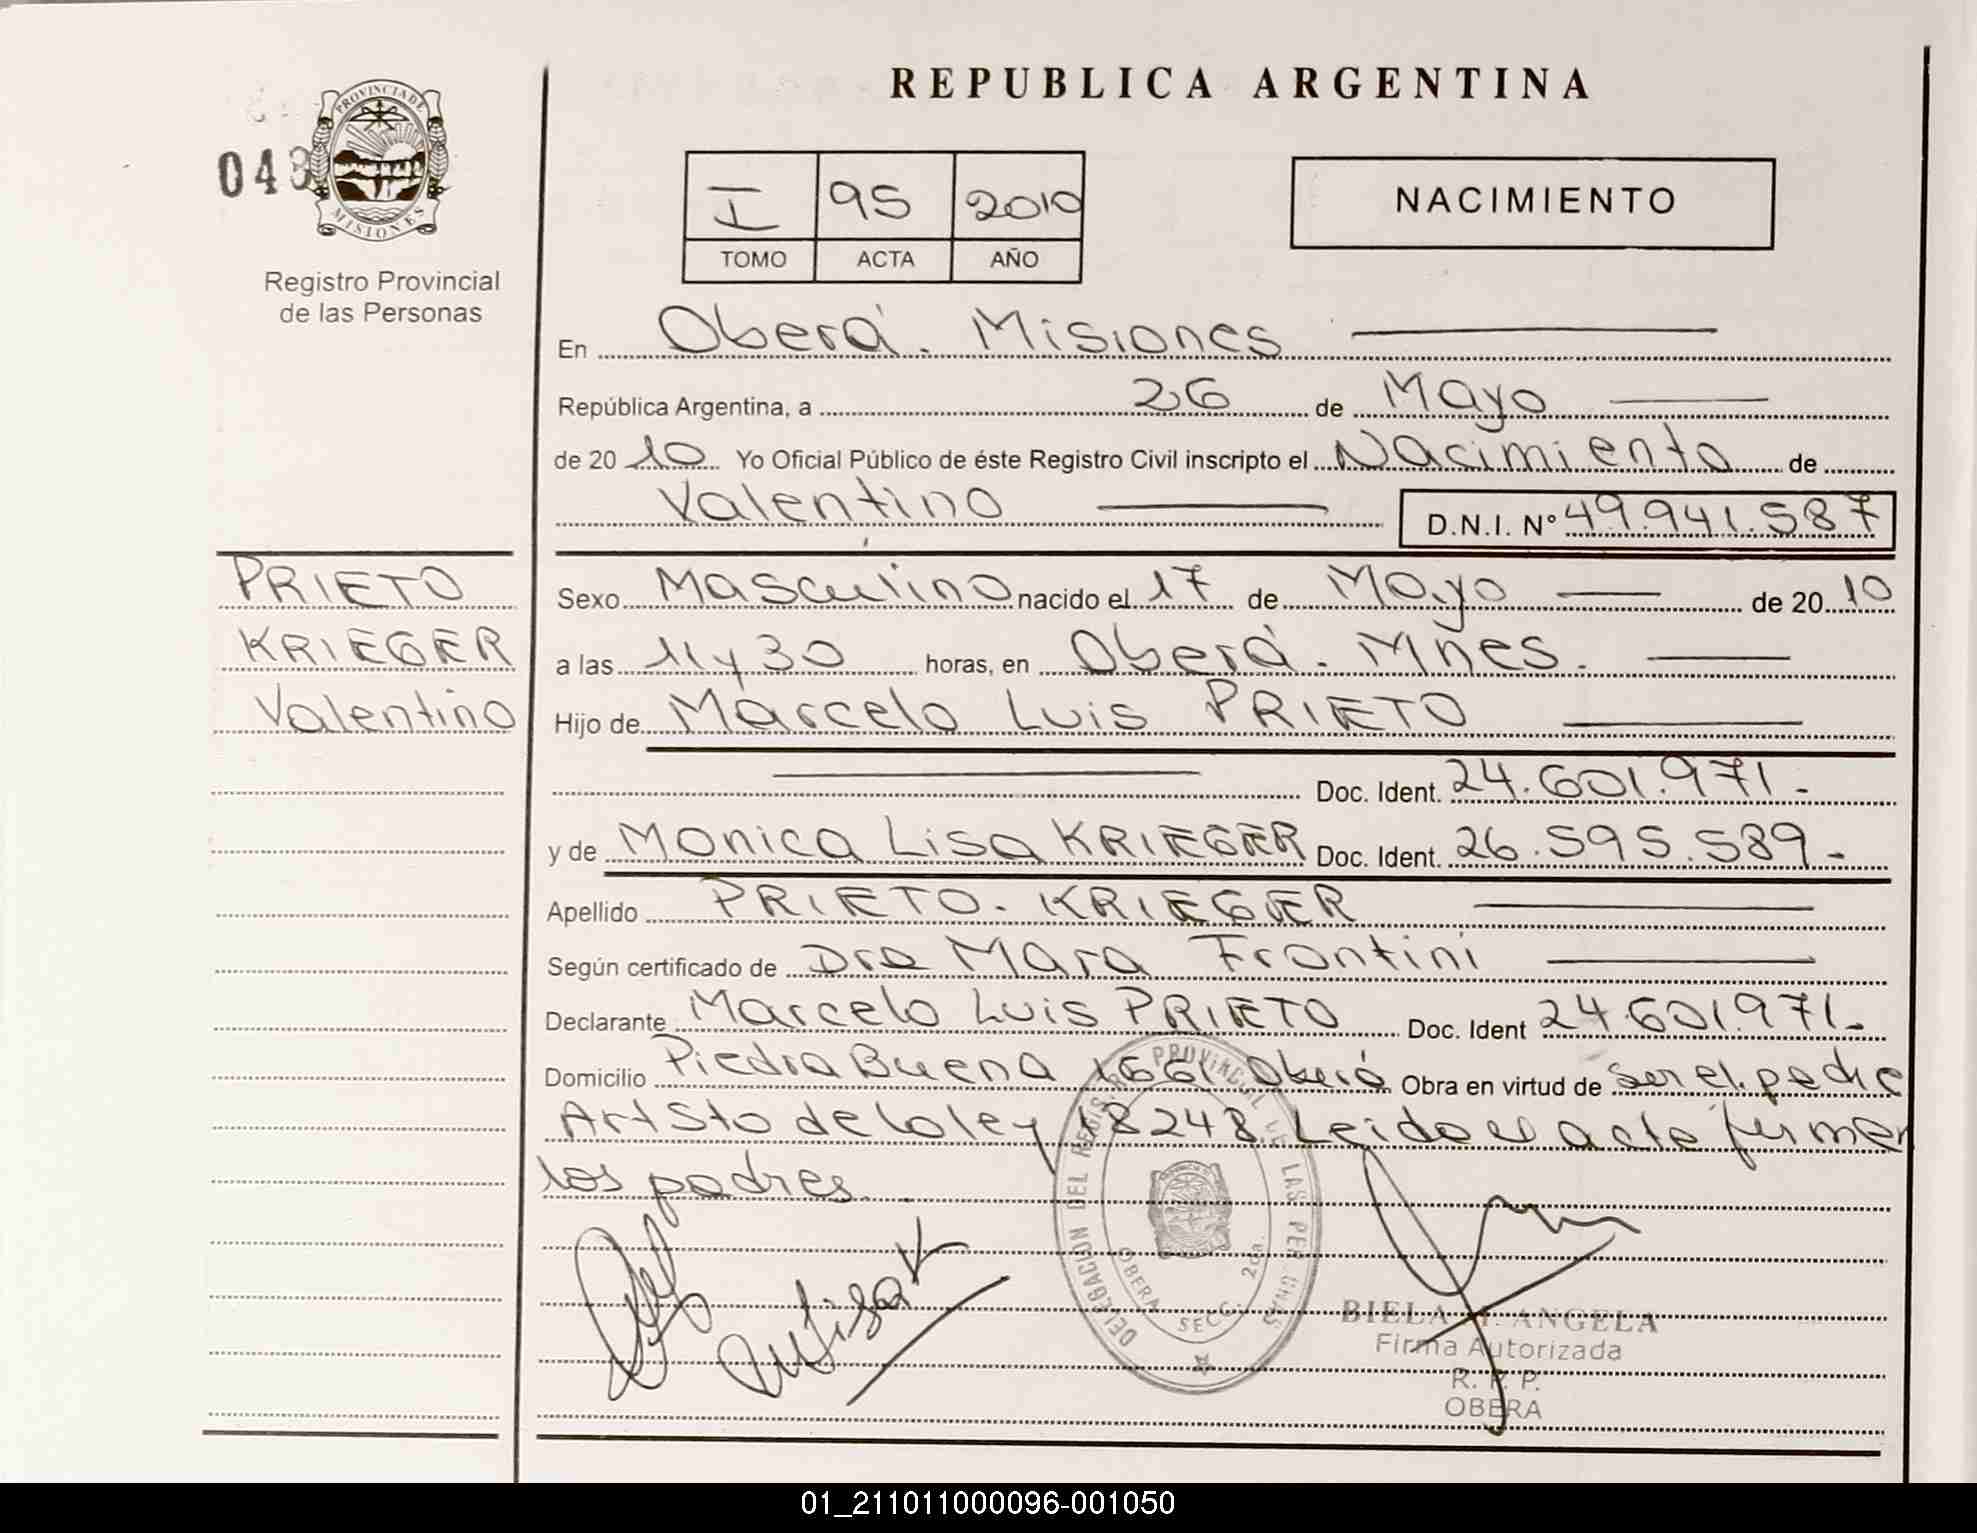 REPUBLICA ARGENTINA
PROVINCIA DE
MISIONES
043
Registro Provincial
de las Personas
I 95 2010
TOMO ACTA AÑO
NACIMIENTO
En Oberá. Misiones
República Argentina, a 26 de Mayo
de 2010 Yo Oficial Público de éste Registro Civil inscripto el Nacimiento de
Valentino D.N.I. N° 49.941.587
PRIETO
KRIEGER
Valentino
Sexo Masculino nacido el 17 de Mayo de 2010
a las 11 y 30 horas, en Oberá. Mnes.
Hijo de Marcelo Luis PRIETO
Doc. Ident. 24.601.971.-
y de Monica Lisa KRIEGER Doc. Ident. 26.595.589.-
Apellido PRIETO. KRIEGER
Según certificado de Dra Mara Frontini
Declarante Marcelo Luis PRIETO Doc. Ident 24.601.971.-
Domicilio Piedra Buena 1661 Oberá Obra en virtud de ser el padre
Art 5to de la ley 18248. Leida el acta firman
los padres.
DELEGACION DEL REGIS. PROVINCIAL DE LAS PERSONAS
OBERA SECC. 2da.
BIELA ANGELA
Firma Autorizada
R. P. P.
OBERA
01_211011000096-001050